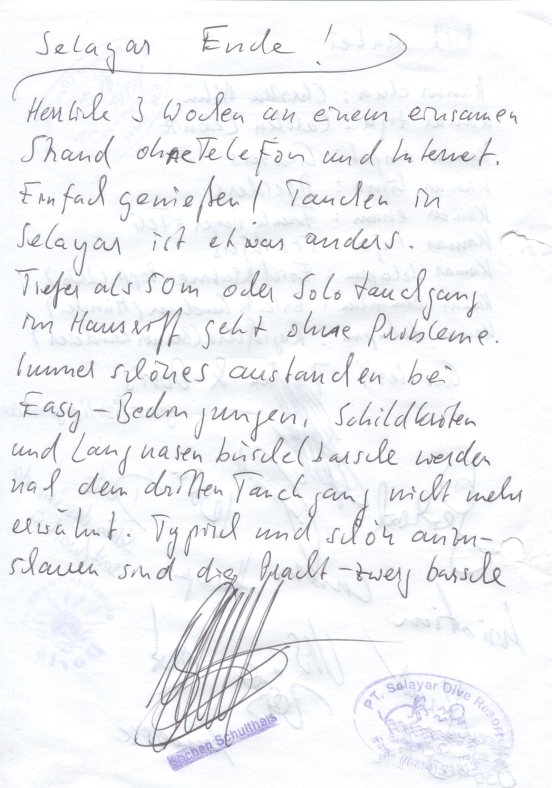 Selayar Ende !
Herrliche 3 Wochen an einem einsamen
Strand ohne Telefon und Internet.
Einfach genießen! Tauchen in
Selayar ist etwas anders.
Tiefer als 50m oder Solotauchgang
im Hausriff geht ohne Probleme.
Immer schönes austauchen bei
Easy-Bedingungen. Schildkröten
und Langnasenbüschelbarsche werden
nach dem dritten Tauchgang nicht mehr
erwähnt. Typisch und schön anzu-
schauen sind die Pracht-zwergbarsche
Jochen Schultheis
PT. Selayar Dive Resort